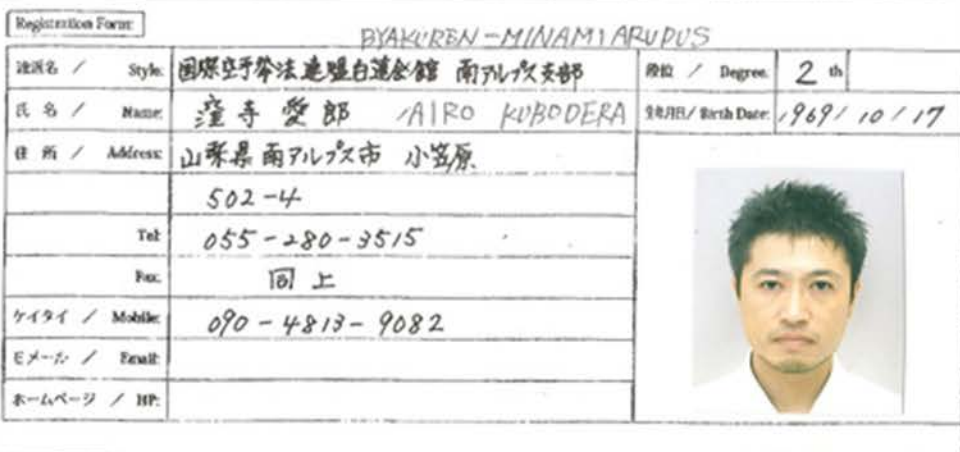 Registration Form:
BYAKUREN-MINAMI ARUPUS
流派名 / Style: 国際空手拳法連盟白蓮会館 南アルプス支部
段位 / Degree: 2 th
氏名 / Name: 窪寺愛郎 /AIRO KUBODERA
生年月日/ Birth Date: 1969/10/17
住所 / Address: 山梨県南アルプス市 小笠原
502-4
Tel: 055-280-3515
Fax: 同上
ケイタイ / Mobile: 090-4813-9082
Eメール / Email:
ホームページ / HP: